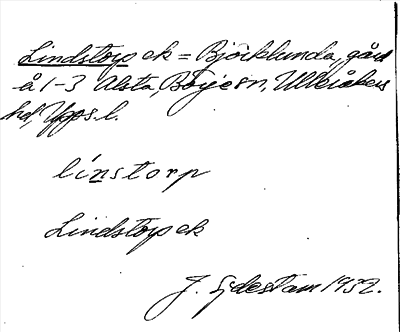 Lindstorp ek = Björklunda, gård
å 1-3 Alsta, Börje sn, Ulleråkers
hd, Upps. l.
línstorp
Lindstorp ek
J. Sjdestam 1952.